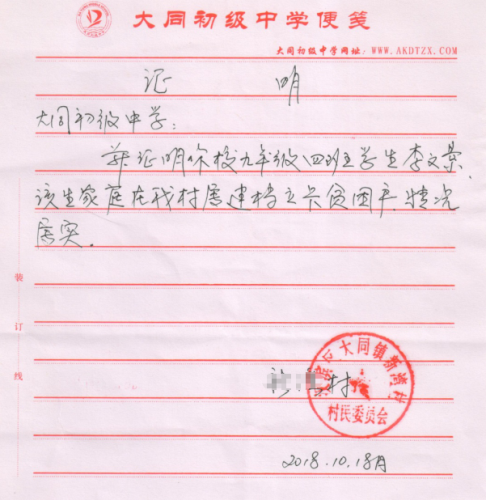 大同初级中学便笺
大同初级中学网址：WWW.AKDTZX.COM
证 明
大同初级中学：
兹证明你校九年级四班学生李文景，
该生家庭在我村属建档立卡贫困户，情况
属实。
装订线
村
区大同镇新湾村
村民委员会
2018.10.18月